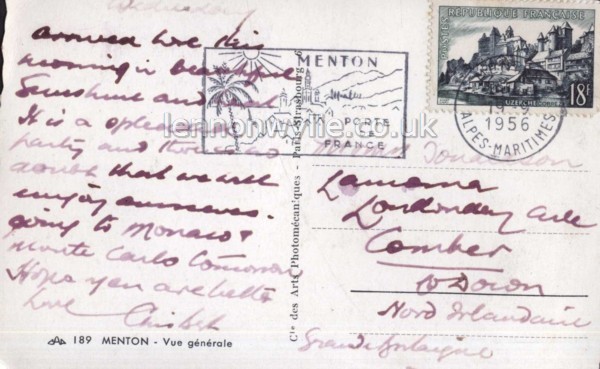 Wednesday
arrived here this
morning in beautiful
Sunshine and
It is a
party and there is no
doubt that we will
enjoy ourselves.
going to Monaco &
Monte Carlo tomorrow
Hope you are better
Love
189 MENTON - Vue générale
Cie des Arts Photomécaniques - Paris-Strasbourg
MENTON
PORTE
DE
FRANCE
RÉPUBLIQUE FRANÇAISE
POSTES
UZERCHE
18F
1956
ALPES-MARITIMES
Londonderry
Comber
Co Down
Nord Irlandaire
Grande Bretagne
lennonwylie.co.uk